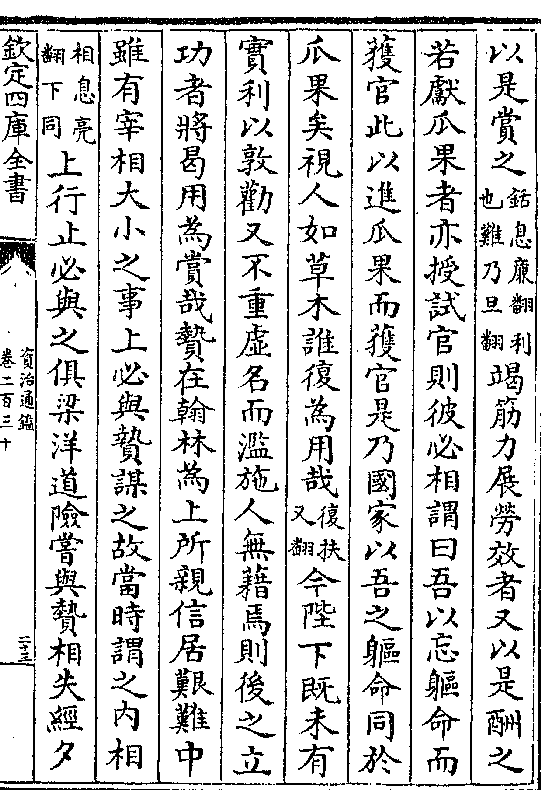 以是賞之銛息廉翻利也難乃旦翻竭筋力展勞效者又以是酬之
若獻瓜果者亦授試官則彼必相謂曰吾以忘軀命而
獲官此以進瓜果而獲官是乃國家以吾之軀命同於
瓜果矣視人如草木誰復為用哉復扶又翻今陛下既未有
實利以敦勸又不重虛名而濫施人無藉焉則後之立
功者將曷用為賞哉贄在翰林為上所親信居艱難中
雖有宰相大小之事上必與贄謀之故當時謂之內相
相息亮翻下同上行止必與之俱梁洋道險嘗與贄相失經夕
欽定四庫全書
資治通鑑
卷二百三十
二十三